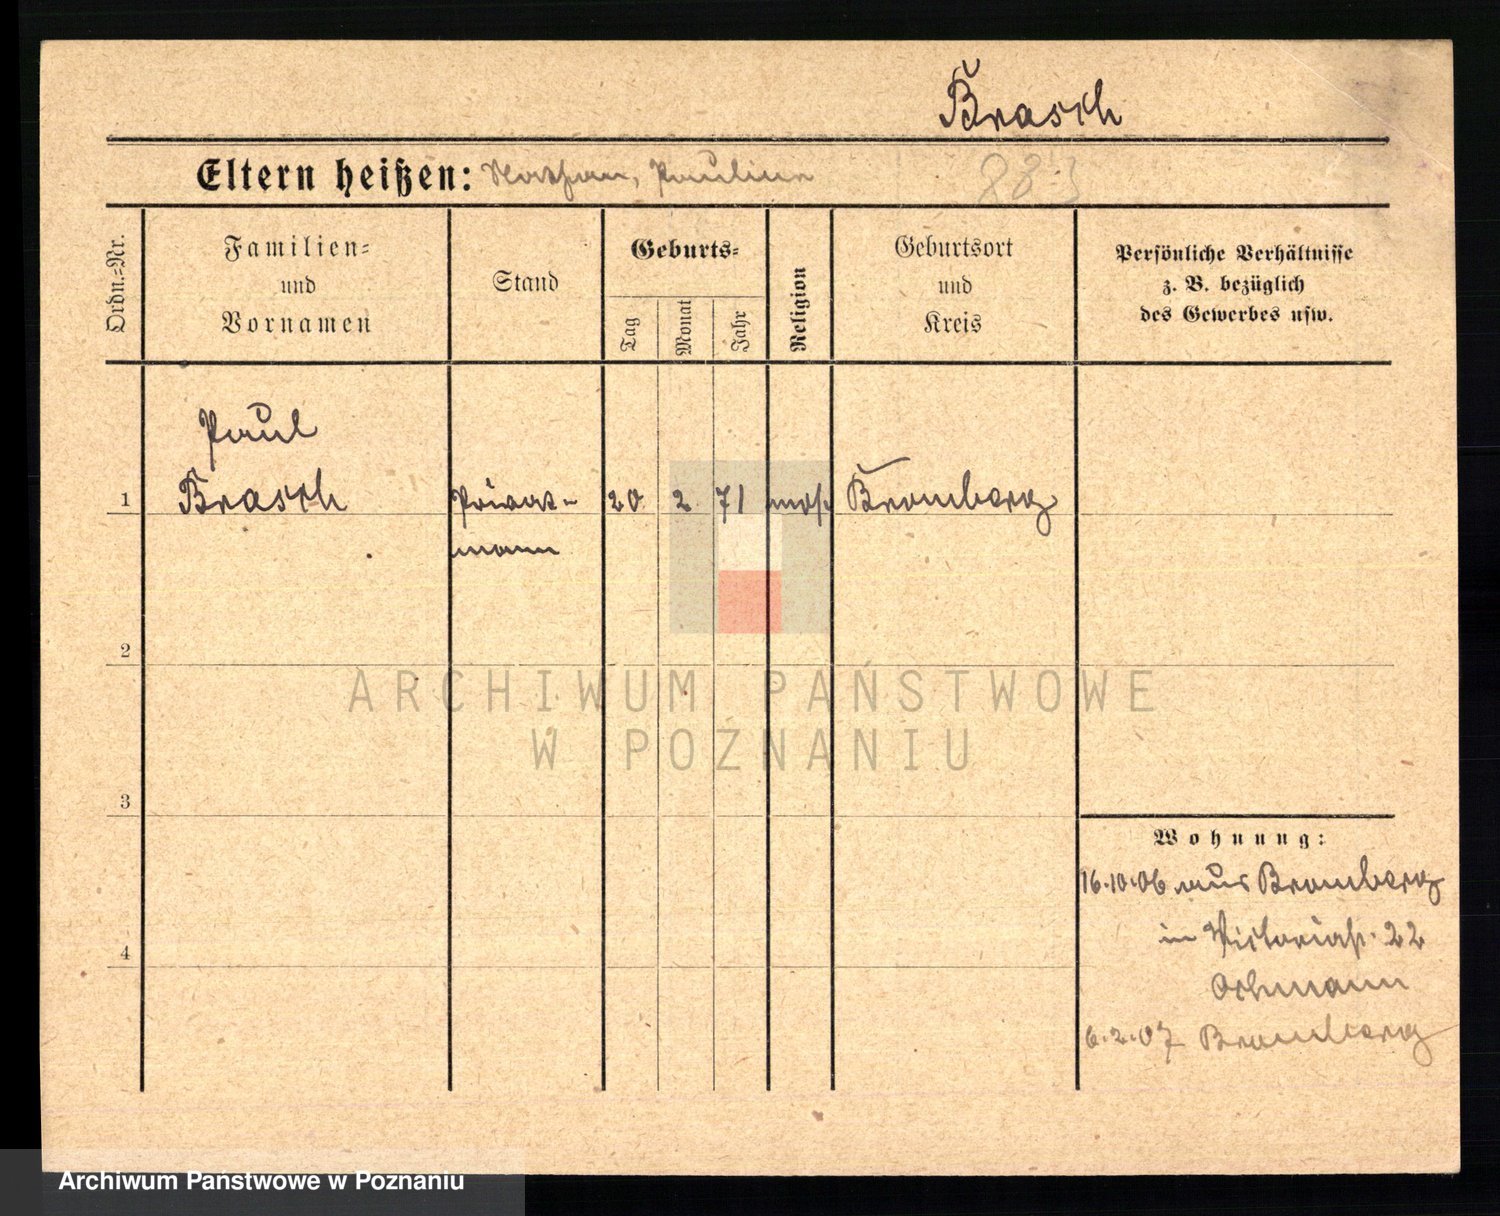 Brasch
Eltern heißen: Nathan, Pauline
883
Ordn.=Nr.
Familien=
und
Vornamen
Stand
Geburts=
Tag
Monat
Jahr
Religion
Geburtsort
und
Kreis
Persönliche Verhältnisse
z. B. bezüglich
des Gewerbes usw.
Paul
1 Brasch Privat- 20 2 71 mos Bromberg
mann
2
3
4
Wohnung:
16.10.06 aus Bromberg
in Victoriast. 22
6.2.07 Bromberg
ARCHIWUM PAŃSTWOWE
W POZNANIU
Archiwum Państwowe w Poznaniu